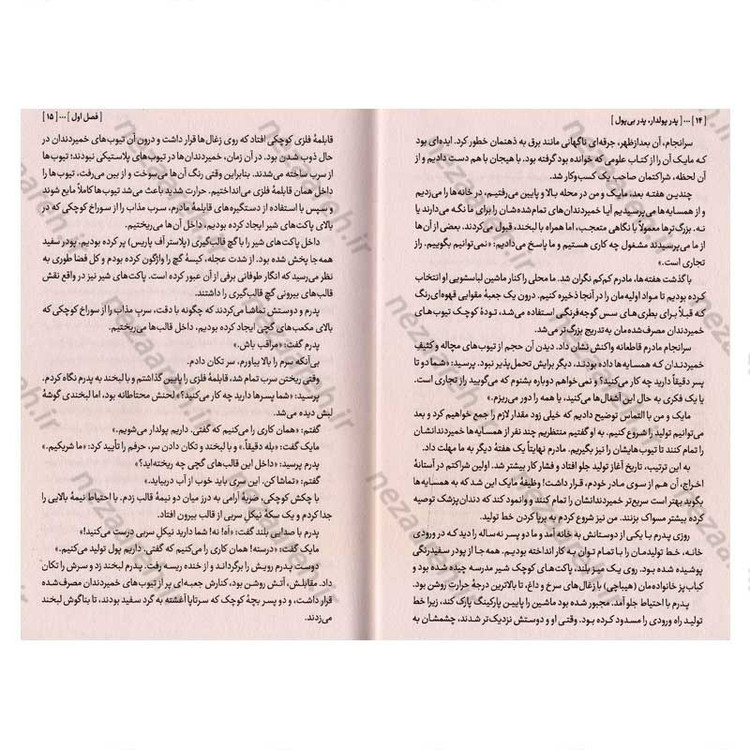 [۱۴] ... [ پدر پولدار، پدر بی‌پول ]
سرانجام، آن بعدازظهر، جرقه‌ای ناگهانی مانند برق به ذهنمان خطور کرد. ایده‌ای بود
که مایک آن را از کتاب علومی که خوانده بود گرفته بود. با هیجان با هم دست دادیم و از
آن لحظه، شراکتمان صاحب یک کسب‌وکار شد.
چندین هفته بعد، مایک و من در محله بالا و پایین می‌رفتیم، در خانه‌ها را می‌زدیم
و از همسایه‌ها می‌پرسیدیم آیا خمیردندان‌های تمام‌شده‌شان را برای ما نگه می‌دارند یا
نه. بزرگ‌ترها معمولاً با نگاهی متعجب، اما همراه با لبخند، قبول می‌کردند. بعضی از آن‌ها
از ما می‌پرسیدند مشغول چه کاری هستیم و ما پاسخ می‌دادیم: «نمی‌توانیم بگوییم. راز
تجاری است.»
با گذشت هفته‌ها، مادرم کم‌کم نگران شد. ما محلی را کنار ماشین لباسشویی او انتخاب
کرده بودیم تا مواد اولیه‌مان را در آنجا ذخیره کنیم. درون یک جعبهٔ مقوایی قهوه‌ای‌رنگ
که قبلاً برای بطری‌های سس گوجه‌فرنگی استفاده می‌شد، تودهٔ کوچک تیوب‌های
خمیردندان مصرف‌شده‌مان به‌تدریج بزرگ‌تر می‌شد.
سرانجام مادرم قاطعانه واکنش نشان داد. دیدن آن حجم از تیوب‌های مچاله و کثیفِ
خمیردندان که همسایه‌ها داده بودند، دیگر برایش تحمل‌پذیر نبود. پرسید: «شما دو تا
پسر دقیقاً دارید چه کار می‌کنید؟ و نمی‌خواهم دوباره بشنوم که می‌گویید راز تجاری است.
یا یک فکری به حال این آشغال‌ها می‌کنید، یا همه را دور می‌ریزم.»
مایک و من با التماس توضیح دادیم که خیلی زود مقدار لازم را جمع خواهیم کرد و بعد
می‌توانیم تولید را شروع کنیم. به او گفتیم منتظریم چند نفر از همسایه‌ها خمیردندانشان
را تمام کنند تا تیوب‌هایشان را نیز بگیریم. مادرم نهایتاً یک هفتهٔ دیگر به ما مهلت داد.
به این ترتیب، تاریخ آغاز تولید جلو افتاد و فشار کار بیشتر شد. اولین شراکتم در آستانهٔ
اخراج، آن هم از سوی مادر خودم، قرار داشت! وظیفهٔ مایک این شد که به همسایه‌ها
بگوید بهتر است سریع‌تر خمیردندانشان را تمام کنند و وانمود کند که دندان‌پزشک توصیه
کرده بیشتر مسواک بزنند. من نیز شروع کردم به برپا کردن خط تولید.
روزی پدرم با یکی از دوستانش به خانه آمد و ما دو پسر نه‌ساله را دید که در ورودی
خانه، خط تولیدمان را با تمام توان به کار انداخته بودیم. همه‌جا از پودر سفیدرنگی
پوشیده شده بود. روی یک میز بلند، پاکت‌های کوچک شیر مدرسه چیده شده بود و
کباب‌پز خانواده‌مان (هیباچی) با زغال‌های سرخ و داغ، تا بالاترین درجهٔ حرارت روشن بود.
پدرم با احتیاط جلو آمد. مجبور شده بود ماشین را پایین پارکینگ پارک کند، زیرا خط
تولید راه ورودی را مسدود کرده بود. وقتی او و دوستش نزدیک‌تر شدند، چشمشان به
[ فصل اول ] ... [ ۱۵]
قابلمهٔ فلزی کوچکی افتاد که روی زغال‌ها قرار داشت و درون آن تیوب‌های خمیردندان در
حال ذوب شدن بود. در آن زمان، خمیردندان‌ها در تیوب‌های پلاستیکی نبودند؛ تیوب‌ها را
از سرب ساخته می‌شدند. بنابراین وقتی رنگ آن‌ها می‌سوخت و از بین می‌رفت، تیوب‌ها را
داخل همان قابلمهٔ فلزی می‌انداختیم. حرارت شدید باعث می‌شد تیوب‌ها کاملاً مایع شوند
و سپس با استفاده از دستگیره‌های قابلمهٔ مادرم، سرب مذاب را از سوراخ کوچکی که در
بالای پاکت‌های شیر ایجاد کرده بودیم، داخل آن‌ها می‌ریختیم.
داخل پاکت‌های شیر را با گچ قالب‌گیری (پلاستر آف پاریس) پر کرده بودیم. پودر سفید
همه‌جا پخش شده بود. از شدت عجله، کیسهٔ گچ را واژگون کرده بودم و کل فضا طوری به
نظر می‌رسید که انگار طوفانی برفی از آن عبور کرده است. پاکت‌های شیر نیز در واقع نقش
قالب‌های بیرونی گچ قالب‌گیری را داشتند.
پدرم و دوستش تماشا می‌کردند که چگونه با دقت، سربِ مذاب را از سوراخ کوچکی که
بالای مکعب‌های گچی ایجاد کرده بودیم، داخل قالب‌ها می‌ریختیم.
پدرم گفت: «مراقب باش.»
بی‌آنکه سرم را بالا بیاورم، سر تکان دادم.
وقتی ریختن سرب تمام شد، قابلمهٔ فلزی را پایین گذاشتم و با لبخند به پدرم نگاه کردم.
پرسید: «شما پسرها دارید چه کار می‌کنید؟» لحنش محتاطانه بود، اما لبخندی گوشهٔ
لبش دیده می‌شد.
گفتم: «همان کاری را می‌کنیم که گفتی. داریم پولدار می‌شویم.»
مایک گفت: «بله دقیقاً.» و با لبخند و تکان دادن سر، حرفم را تأیید کرد. «ما شریکیم.»
پدرم پرسید: «داخل این قالب‌های گچی چه ریخته‌اید؟»
گفتم: «تماشا کن. این سری باید خوب از آب دربیاید.»
با چکش کوچکی، ضربهٔ آرامی به درز میان دو نیمهٔ قالب زدم. با احتیاط نیمهٔ بالایی را
جدا کردم و یک سکهٔ نیکل سربی از قالب بیرون افتاد.
پدرم با صدایی بلند گفت: «آه! نه! شما دارید نیکل سربی درست می‌کنید!»
مایک گفت: «درسته! همان کاری را می‌کنیم که گفتی. داریم پول تولید می‌کنیم.»
دوست پدرم رویش را برگرداند و از خنده ریسه رفت. پدرم لبخند زد و سرش را تکان
داد. مقابلش، آتش روشن بود، کنارش جعبه‌ای پر از تیوب‌های خمیردندان مصرف‌شده
قرار داشت، و دو پسر بچهٔ کوچک که سرتاپا آغشته به گرد سفید بودند، تا بناگوش لبخند
می‌زدند.
nezaareh.ir